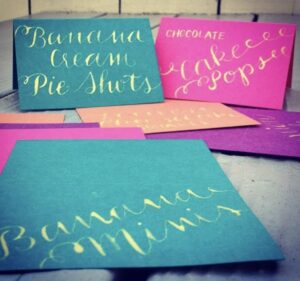 Banana
Cream
Pie Shots
CHOCOLATE
Cake
Pops
Banana
Minis